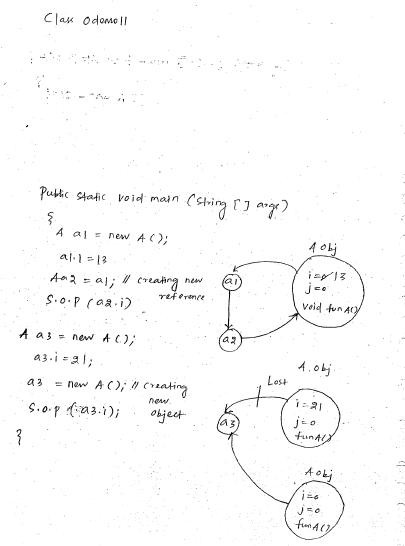 Class Odemo11
Public static void main (String [] args)
{
A a1 = new A();
a1.i = 13
A a2 = a1; // creating new
reference
S.o.p (a2.i)
A a3 = new A();
a3.i = 21;
a3 = new A(); // creating
new
object
S.o.p (a3.i);
}
A obj
i = 0 13
j = 0
void funA()
a1
a2
A. obj
Lost
i = 21
j = 0
funA()
a3
A obj
i = 0
j = 0
funA()